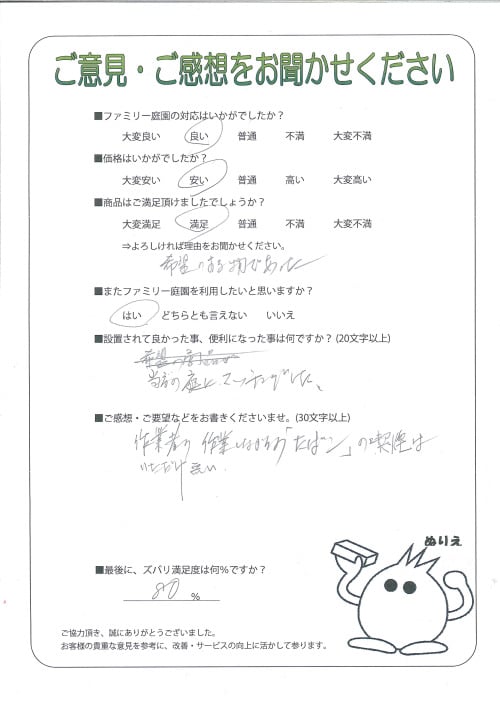 ご意見・ご感想をお聞かせください
■ファミリー庭園の対応はいかがでしたか？
大変良い 良い 普通 不満 大変不満
■価格はいかがでしたか？
大変安い 安い 普通 高い 大変高い
■商品はご満足頂けましたでしょうか？
大変満足 満足 普通 不満 大変不満
⇒よろしければ理由をお聞かせください。
希望のある物であった
■またファミリー庭園を利用したいと思いますか？
はい どちらとも言えない いいえ
■設置されて良かった事、便利になった事は何ですか？(20文字以上)
希望の
当方の庭にマッチングした、
■ご感想・ご要望などをお書きくださいませ。(30文字以上)
作業者の作業しながらの「たばこ」の喫煙は
いただけない
ぬりえ
■最後に、ズバリ満足度は何%ですか？
80 %
ご協力頂き、誠にありがとうございました。
お客様の貴重な意見を参考に、改善・サービスの向上に活かして参ります。